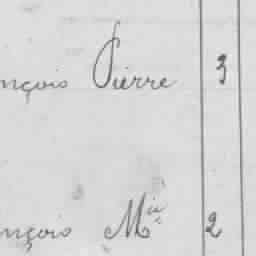 nçois Pierre 3
nçois Mie 2